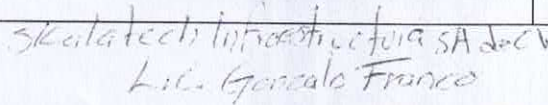 Skalatech Infraestructura SA de CV
Lic. Gonzalo Franco